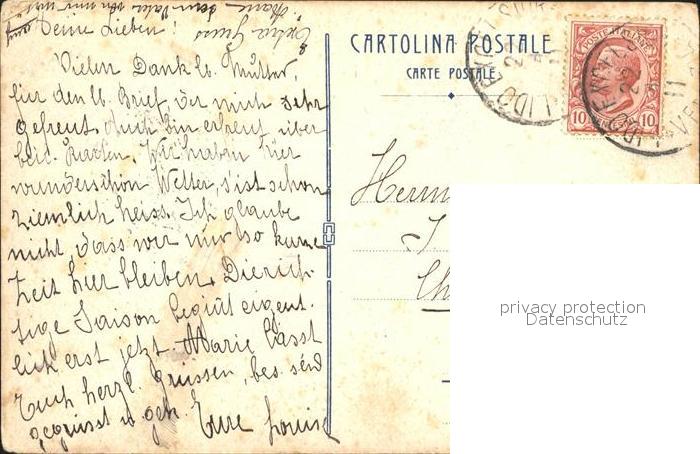 Meine Lieben!
Vielen Dank lb. Mutter,
für den lb. Brief, der mich sehr
gefreut. Auch bin erfreut über
beid. Karten. Wir haben hier
wunderschön Wetter, s'ist schon
ziemlich heiss. Ich glaube
nicht, dass wir nur so kurze
Zeit hier bleiben. Die rich-
tige Saison begint eigent-
lich erst jetzt. Marie lässt
Euch herzl. grüssen, bes. seid
gegrüsst u. gek. Eure Louise
Extra Gruss
CARTOLINA POSTALE
CARTE POSTALE
POSTE ITALIANE
10 10
LIDO
Herm
privacy protection
Datenschutz